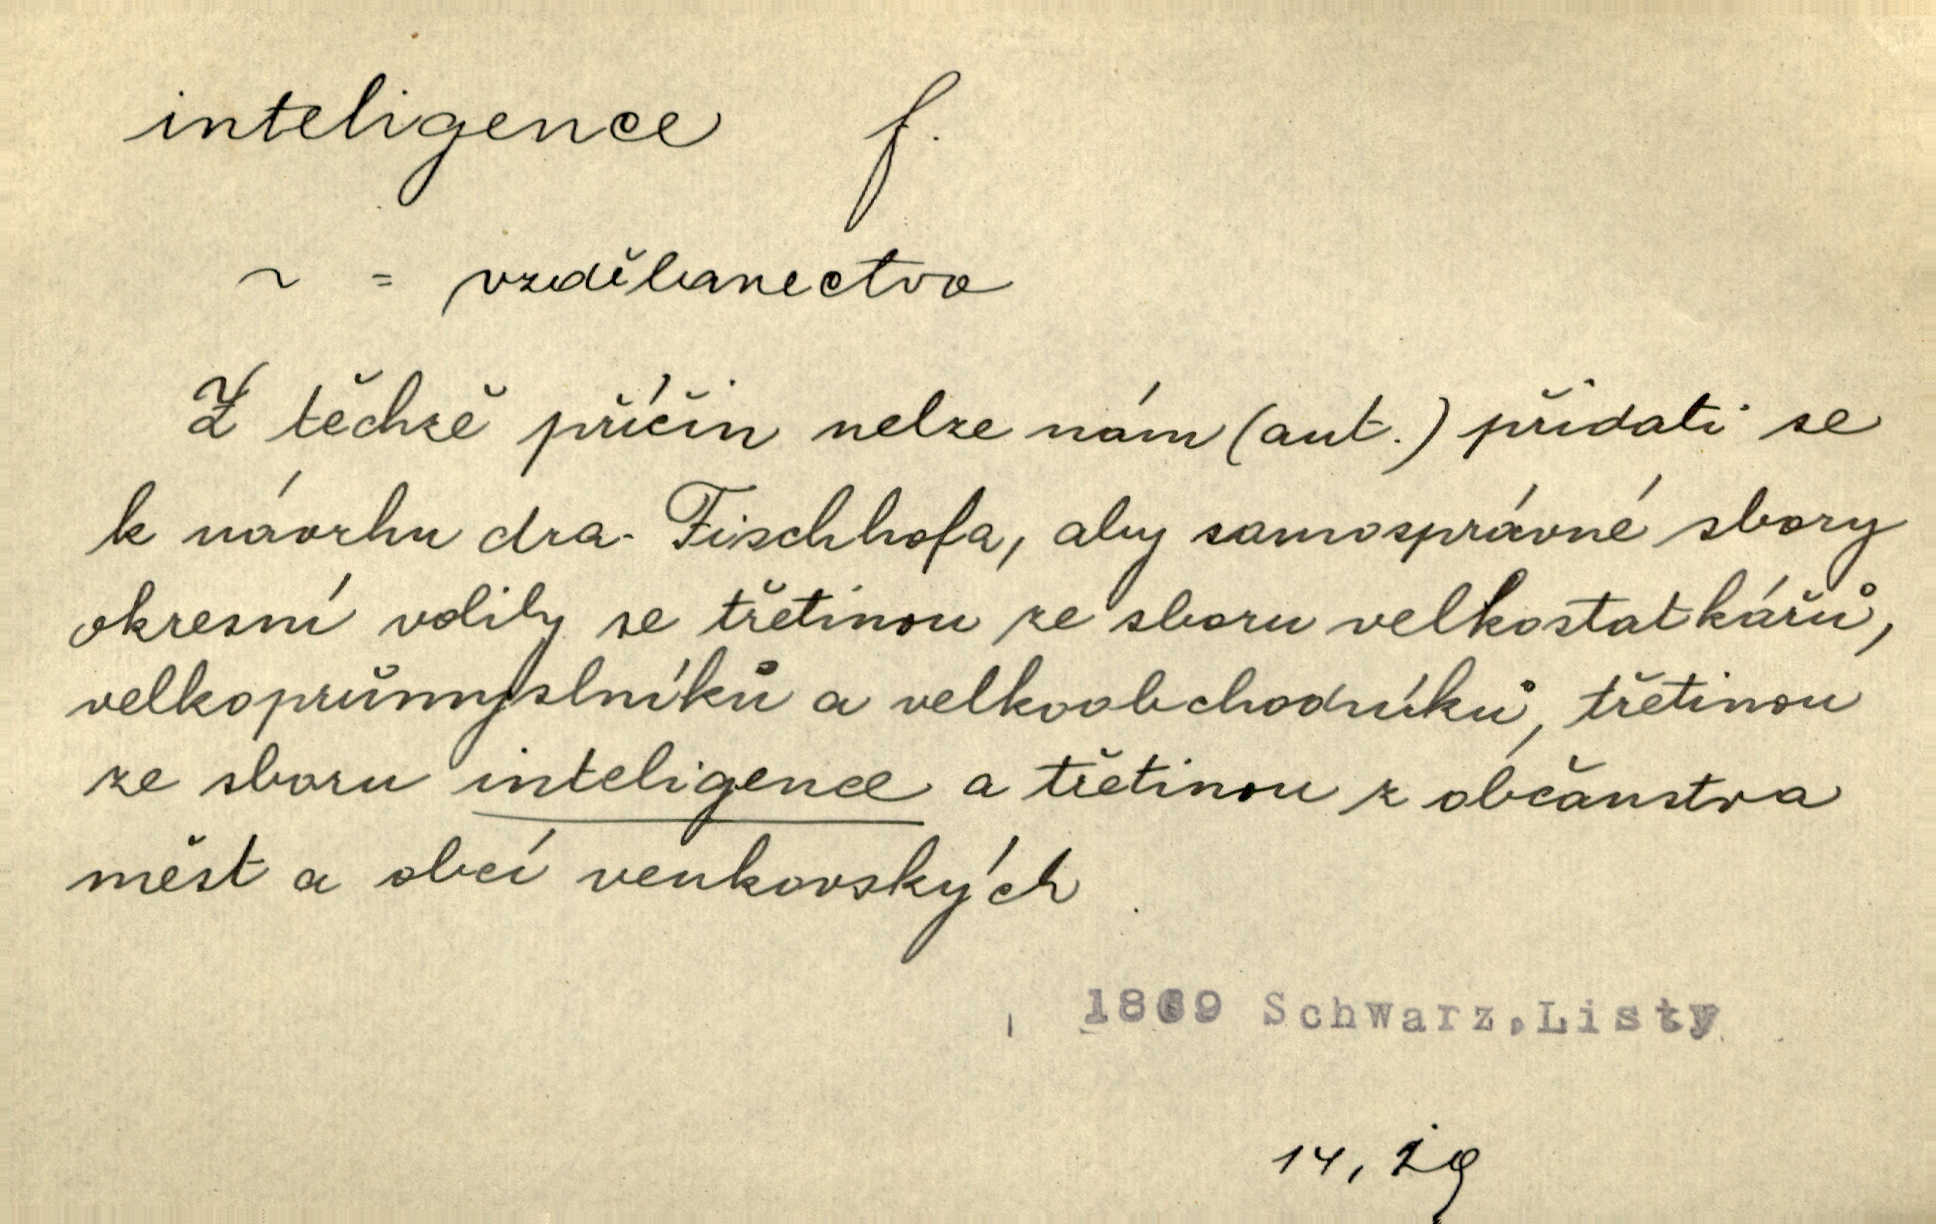 inteligence f.
~ = vzdělanectvo
Z těchže příčin nelze nám (aut.) přidati se
k návrhu dra. Fischhofa, aby samosprávné sbory
okresní volily se třetinou ze sboru velkostatkářů,
velkoprůmyslníků a velkoobchodníků, třetinou
ze sboru inteligence a třetinou z občanstva
měst a obcí venkovských
1869 Schwarz,Listy
14,